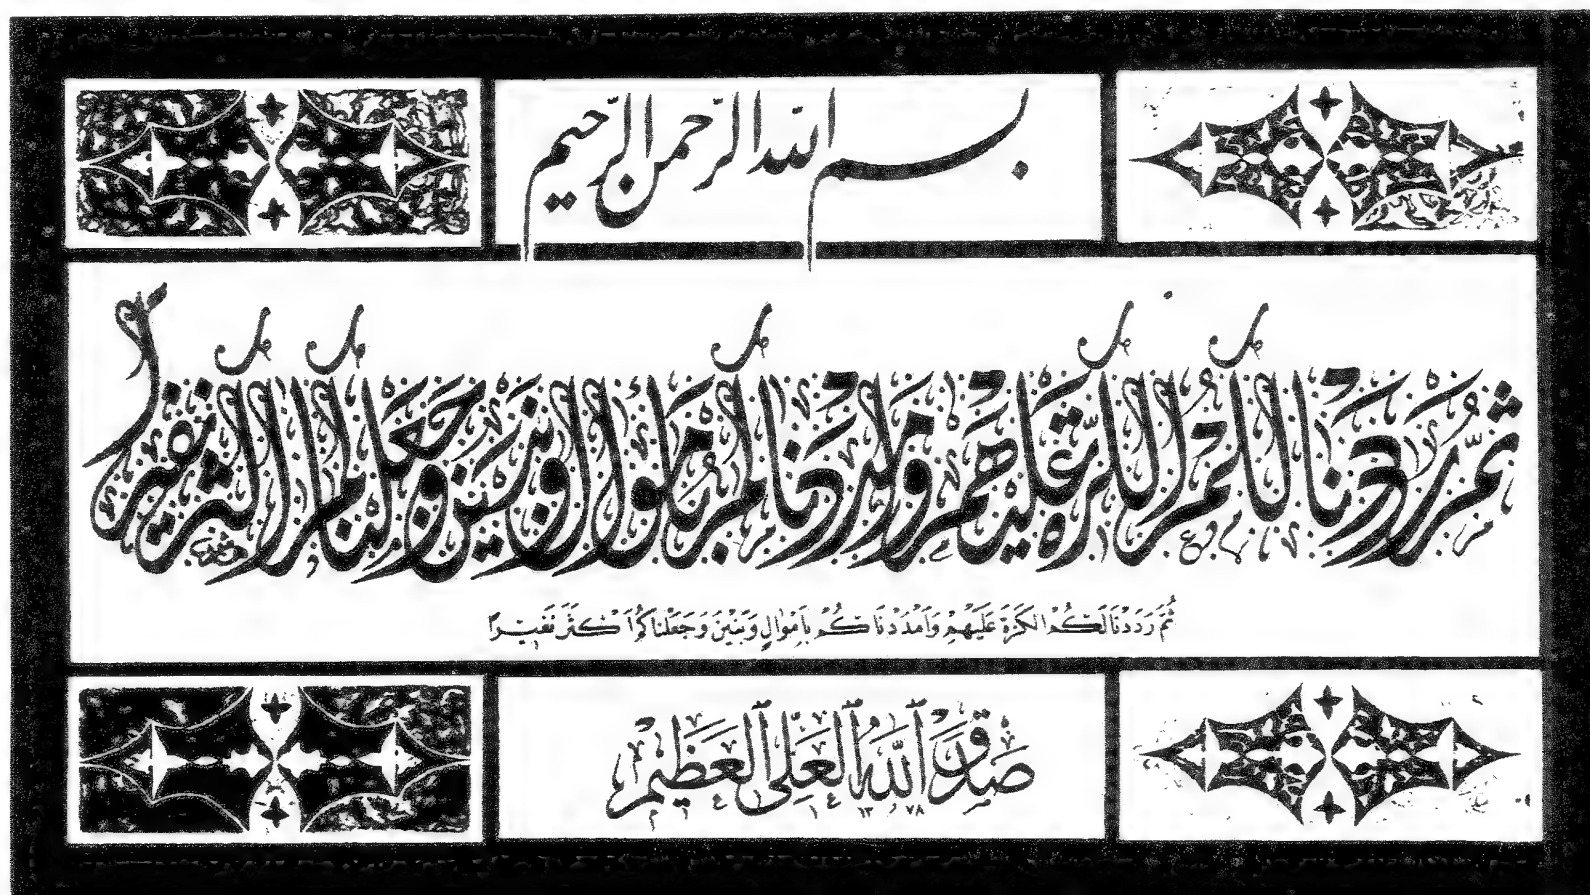 بسم الله الرحمن الرحيم
ثم رددنا لكم الكرة عليهم وامددناكم باموال وبنين وجعلناكم اكثر نفيرا
ثُمَّ رَدَدْنَا لَكُمُ الْكَرَّةَ عَلَيْهِمْ وَاَمْدَدْنَاكُمْ بِاَمْوَالٍ وَبَنِيْنَ وَجَعَلْنَاكُمْ اَكْثَرَ نَفِيْرًا
صَدَقَ ٱللَّهُ ٱلْعَلِيُّ ٱلْعَظِيْمُ
١٣٧٨